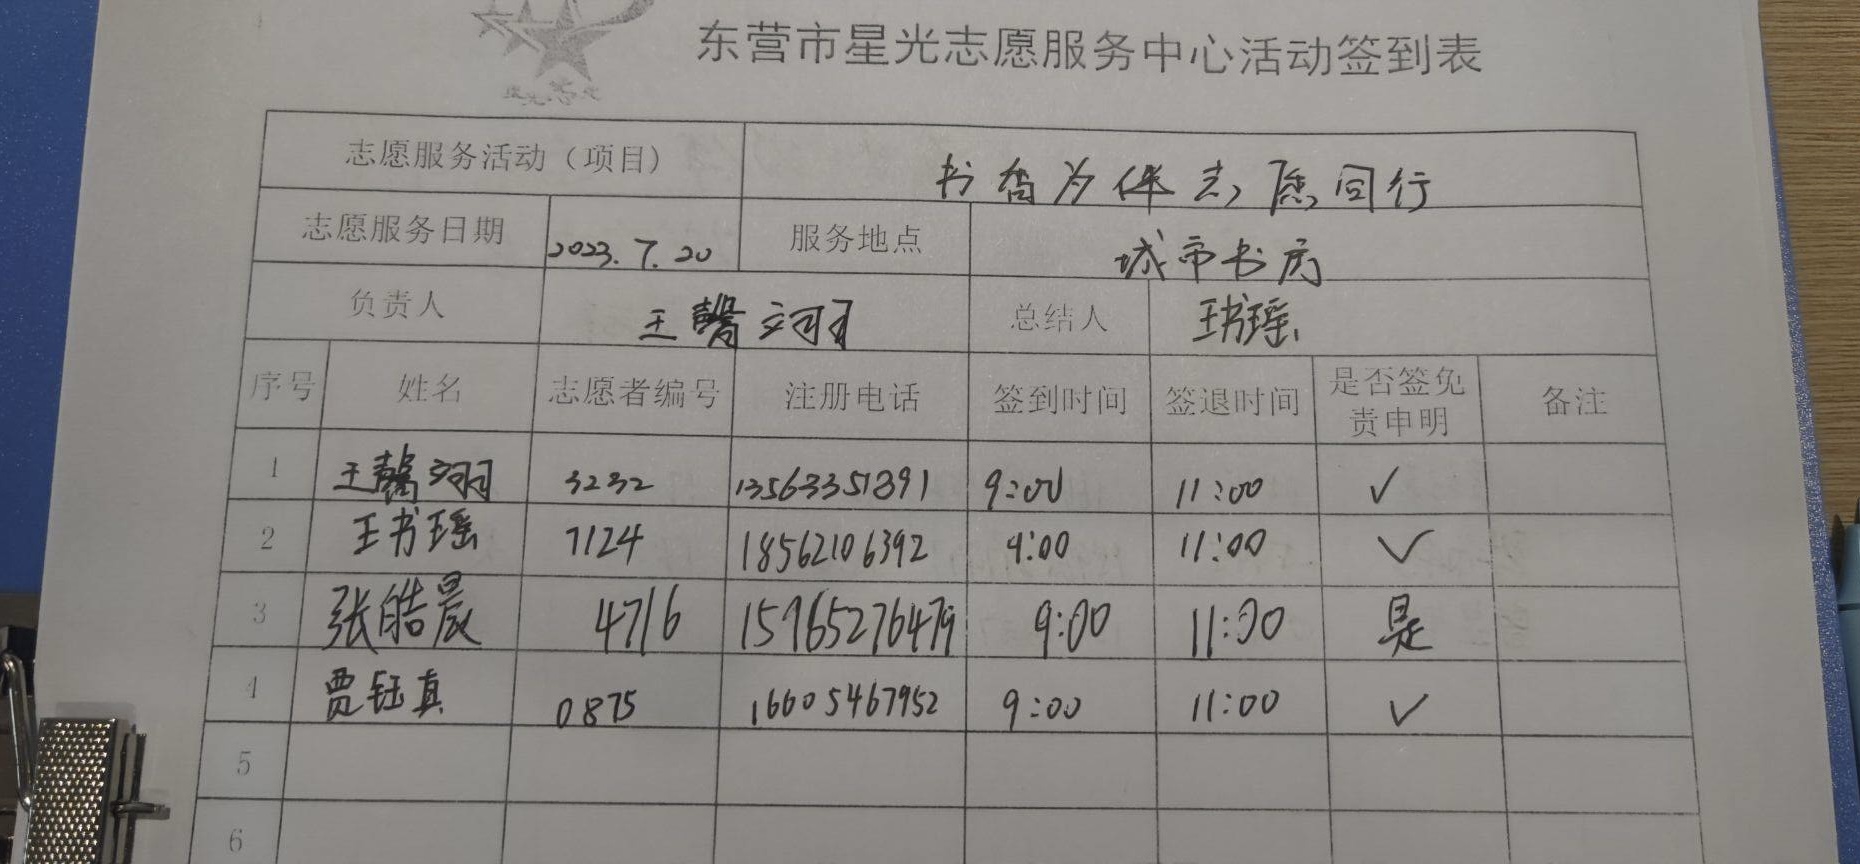 东营市星光志愿服务中心活动签到表
志愿服务活动（项目） 书香为伴志愿同行
志愿服务日期 2023.7.20 服务地点 城市书房
负责人 王馨翊 总结人 王书瑶
序号 姓名 志愿者编号 注册电话 签到时间 签退时间 是否签免责申明 备注
1 王馨翊 3232 13563351391 9:00 11:00 ✓
2 王书瑶 7124 18562106392 9:00 11:00 ✓
3 张皓晨 4716 15965276479 9:00 11:00 是
4 贾钰真 0875 16605467952 9:00 11:00 ✓
5
6